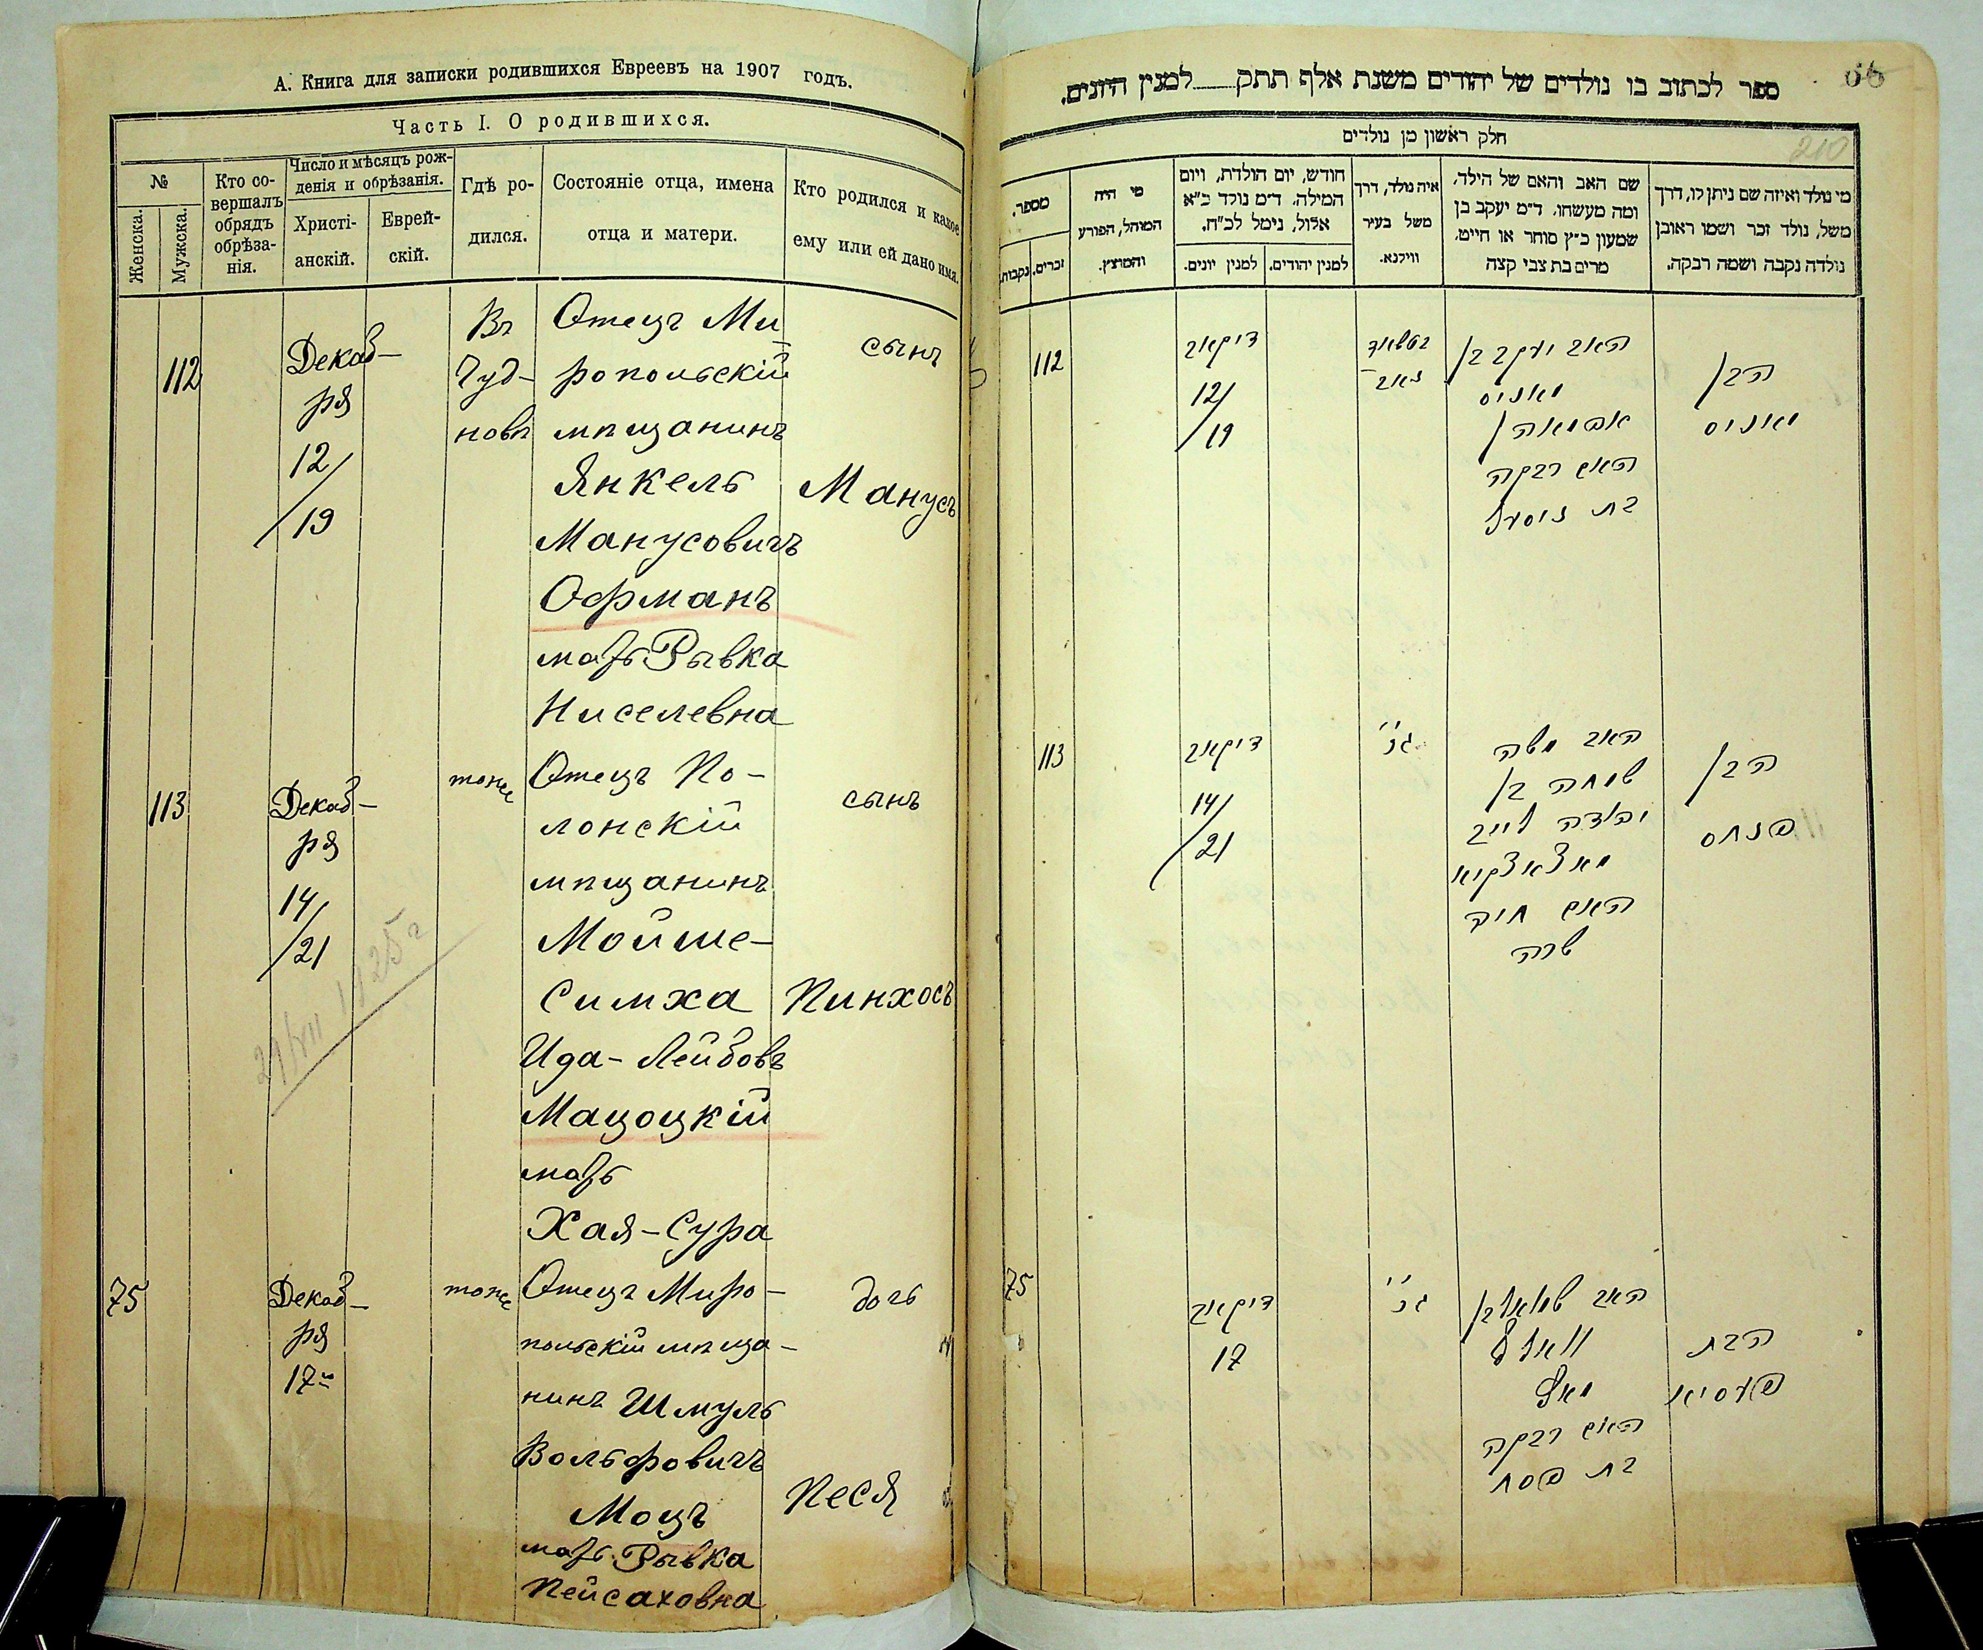 А. Книга для записки родившихся Евреевъ на 1907 годъ.
Часть I. О родившихся.
№
Женска.
Мужска.
Кто со-
вершалъ
обрядъ
обрѣза-
нія.
Число и мѣсяцъ рож-
денія и обрѣзанія.
Христі-
анскій.
Еврей-
скій.
Гдѣ ро-
дился.
Состояніе отца, имена
отца и матери.
Кто родился и какое
ему или ей дано имя.
112
Декаб-
ря
12/
/19
Въ
Чуд-
новѣ
Отецъ Ми
ропольскій
мѣщанинъ
Янкель
Манусовичъ
Офманъ
мать Рывка
Ниселевна
сынъ
Манусъ
113
Декаб-
ря
14/
/21
тоже
Отецъ По-
лонскій
мѣщанинъ
Мойше-
Симха
Ида-Лейбовъ
Мацоцкій
мать
Хая-Сура
сынъ
Пинхосъ
75
Декаб-
ря
17
тоже
Отецъ Миро-
польскій мѣща-
нинъ Шмуль
Вольфовичъ
Моцъ
мать Рывка
Пейсаховна
дочь
Песя
ספר לכתוב בו נולדים של יהודים משנת אלף תתק למנין היונים.
210
חלק ראשון מן נולדים
מספר.
נקבות.
זכרים.
מי היה
המוהל, הפורע
והמוצץ.
חודש, יום הולדת, ויום
המילה. ד״מ נולד כ״א
אלול, נימל לכ״ח.
למנין יונים.
למנין יהודים.
איה נולד, דרך
משל בעיר
ווילנא.
שם האב והאם של הילד,
ומה מעשהו. ד״מ יעקב בן
שמעון כ״ץ סוחר או חייט,
מרים בת צבי קצה
מי נולד ואיזה שם ניתן לו, דרך
משל, נולד זכר ושמו ראובן
נולדה נקבה ושמה רבקה.
112
דיקאב
12/
/19
האב יעקב בן
מאניס
האם רבקה
בת
הבן
מאניס
113
דיקאב
14/
/21
האב משה
שמחה בן
יהודה לייב
האם חיה
שרה
הבן
פנחס
75
דיקאב
17
האב שמואל בן
וואלף
האם רבקה
בת פסח
הבת
פעסיא